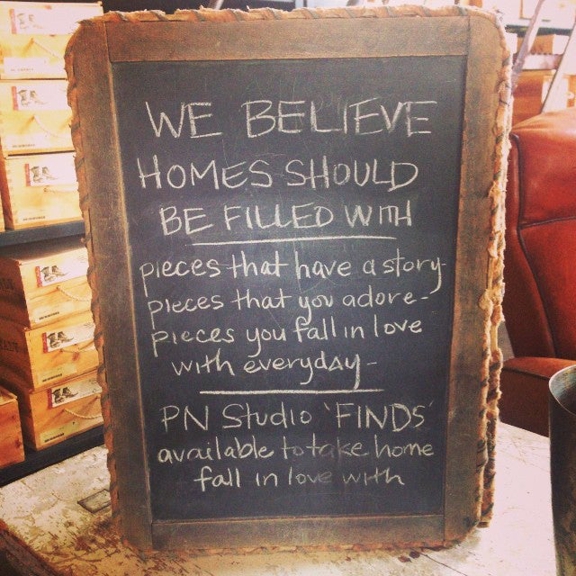 WE BELIEVE
HOMES SHOULD
BE FILLED WITH
pieces that have a story-
pieces that you adore-
pieces you fall in love
with everyday-
PN Studio 'FINDS'
available to take home
fall in love with